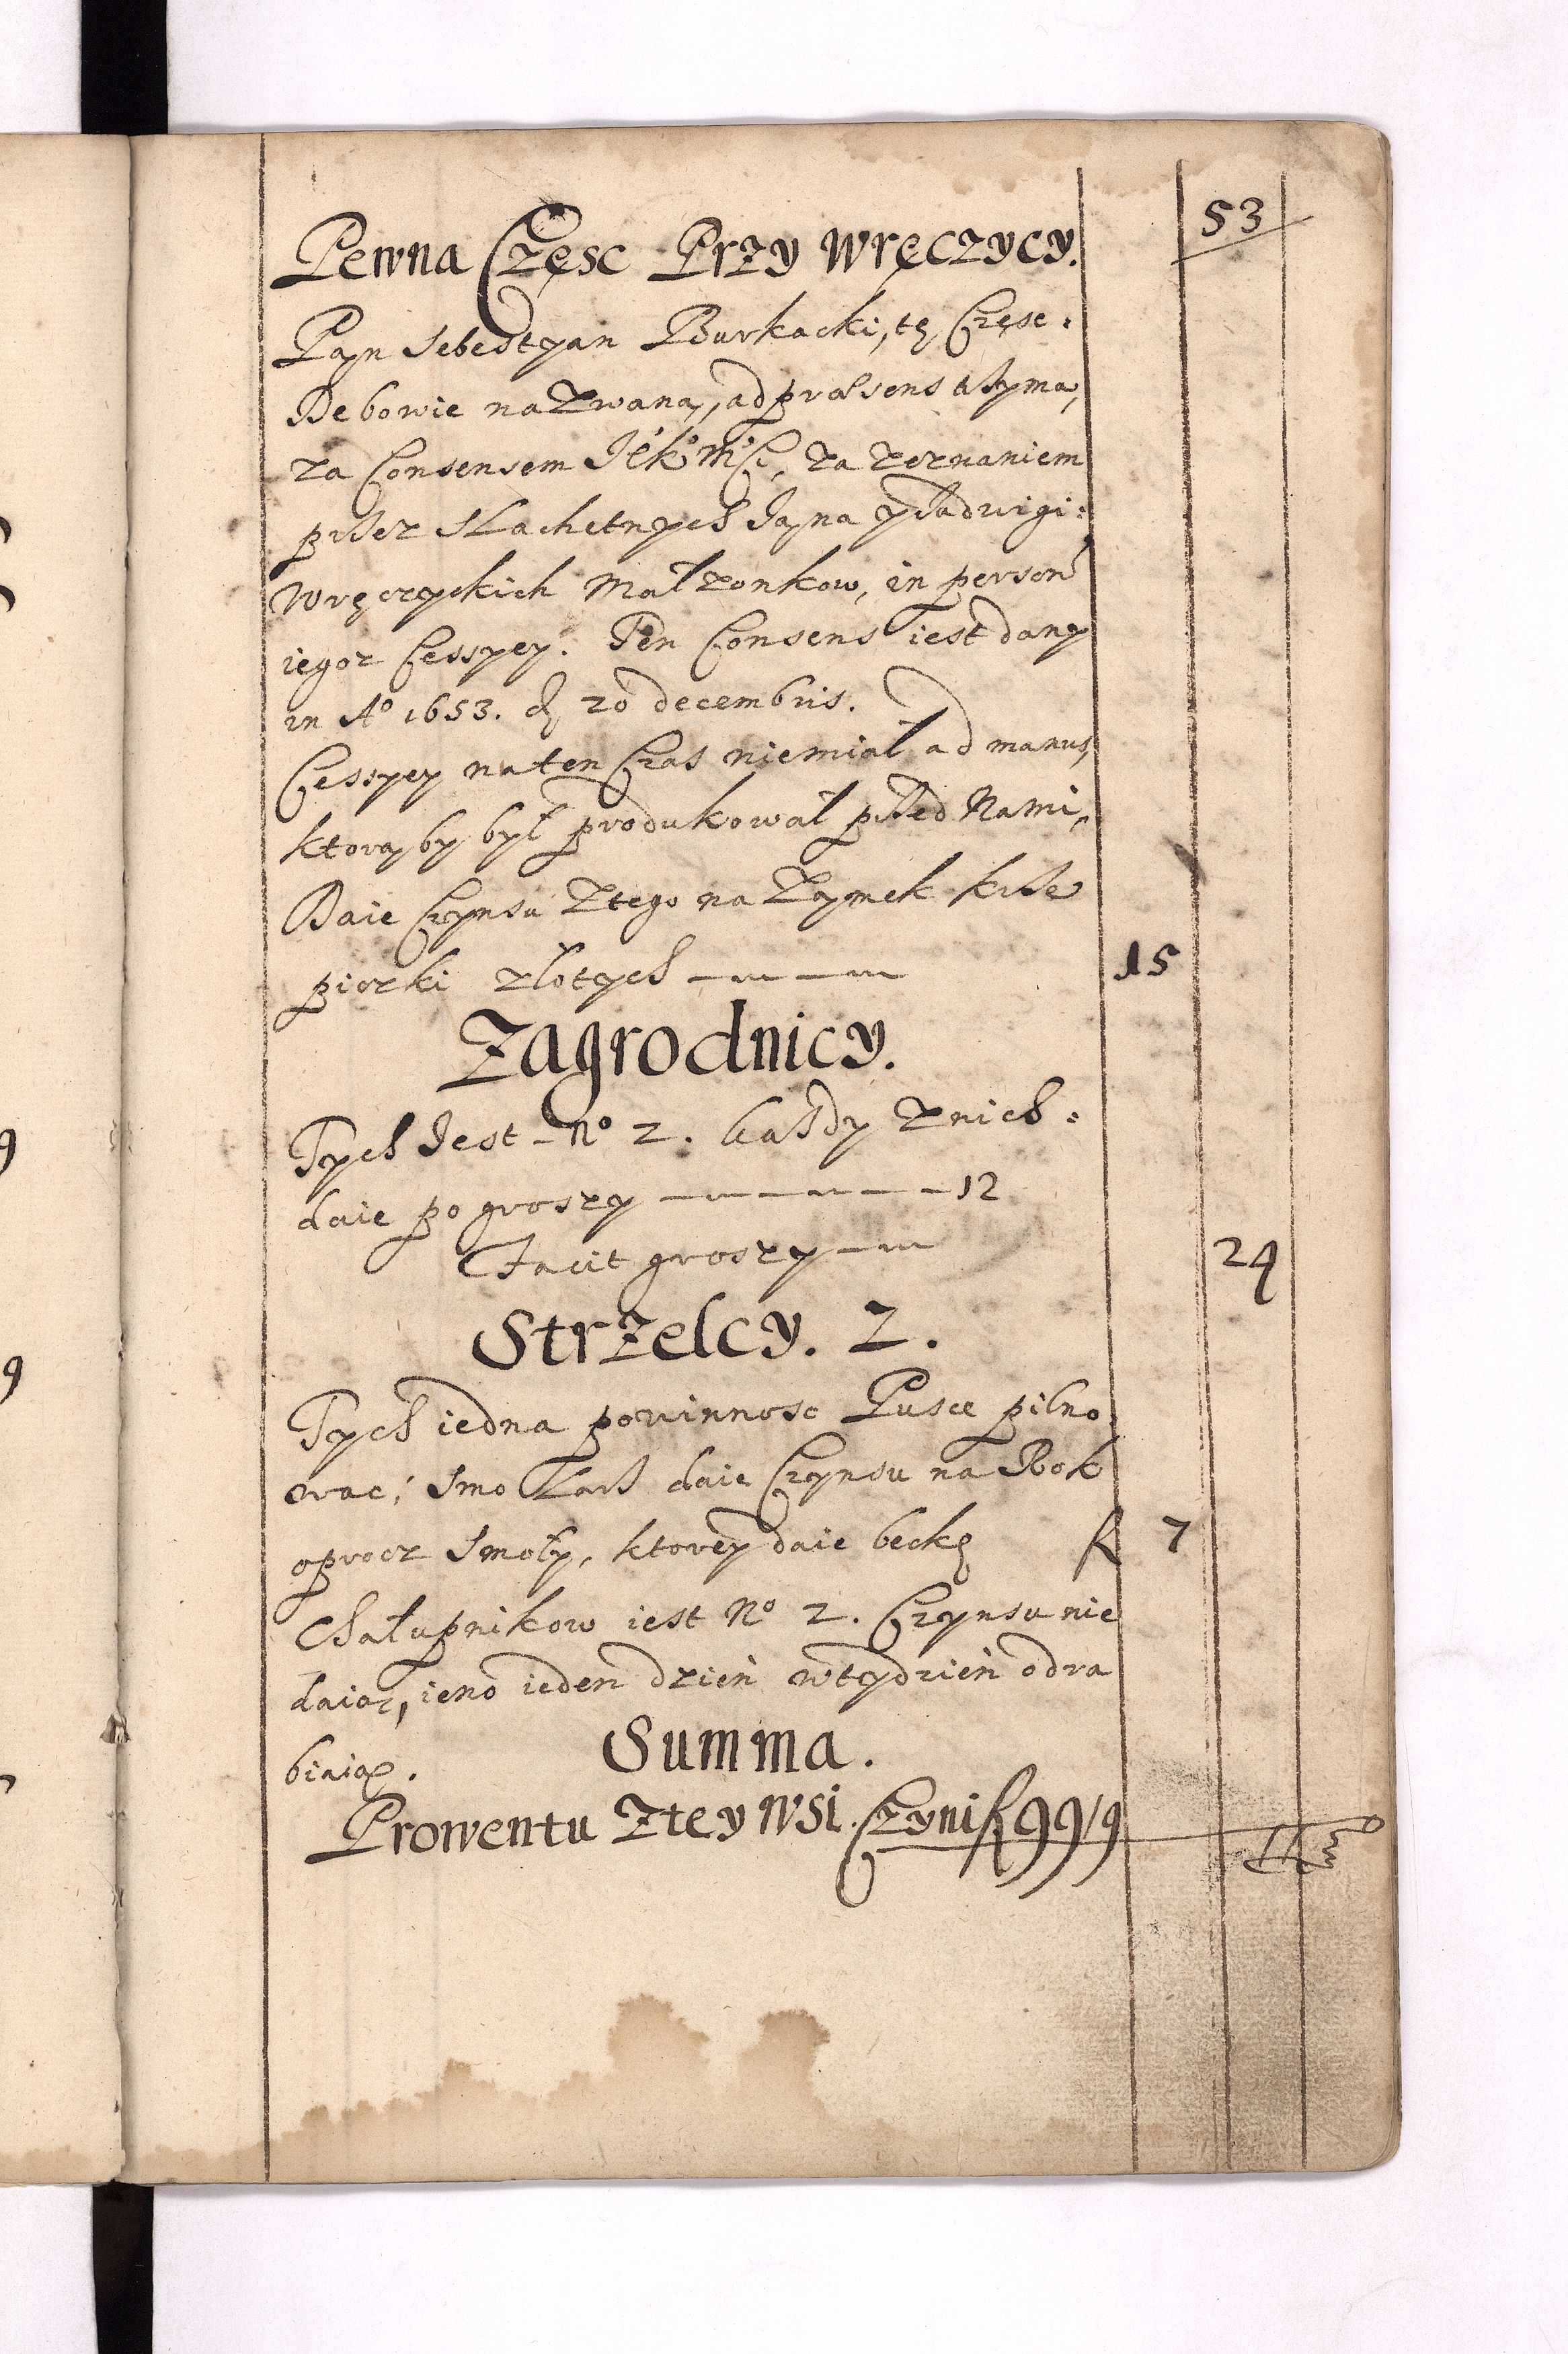 53
Pewna Częsc Przy Wręczycy.
Pan Sebestyan Burkacki, tę Częsc.
Debowie nazwaną, ad præsens trzyma,
za Consensem JeKºMCi, za zeznaniem
przez Slachetnych Jana y Jadwigi:
Wręczyckich Małzonkow, in person
iegoz Cessyey. Ten Consens iest dany
in Aº 1653. d 20 decembris.
Cessyey na ten Czas niemiał ad manus,
ktorąby był produkował przed Nami,
Daie Czynsu ztego na Zamek krze
piczki złotych 15
Zagrodnicy.
Tych Jest Nº 2. każdy znich:
daie po groszy 12
Facit groszy 24
Strzelcy. 2.
Tych iedna powinnosc Pusce pilno
wac; Smolarz daie Czynsu na Rok
oprocz Smoły, ktorey daie beckę f 7
Chałupnikow iest Nº 2. Czynsu nie
daią, ieno ieden dzień wtydzień odra
biaią.
Summa.
Prowentu Ztey Wsi. Czyni f 99/9